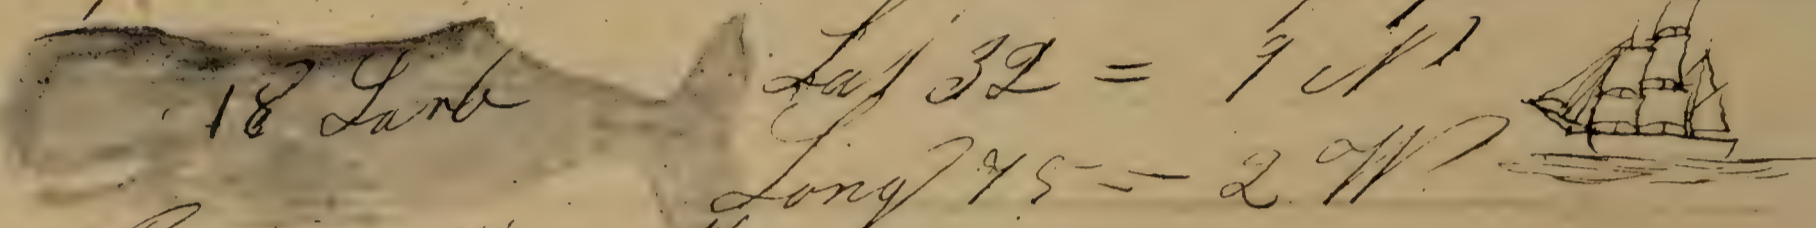 18 Larb
Lat 32 = 9 N
Long 75 = 2 W